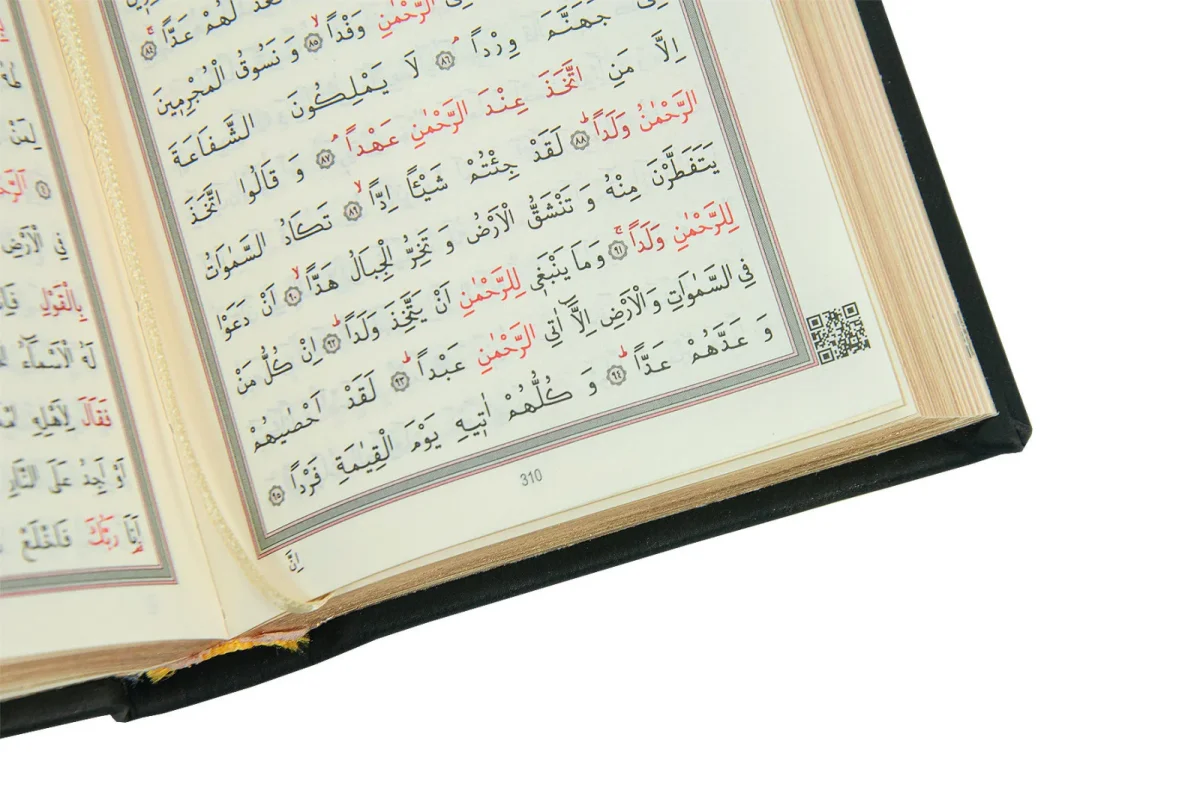 لَهُمْ عَدًّا ٨٤
الرَّحْمٰنِ وَفْدًا ٨٥ وَ نَسُوقُ الْمُجْرِمٖينَ
جَهَنَّمَ وِرْدًا ٨٦ لَا يَمْلِكُونَ الشَّفَاعَةَ
اِلَّا مَنِ اتَّخَذَ عِنْدَ الرَّحْمٰنِ عَهْدًا ٨٧ وَ قَالُوا اتَّخَذَ
الرَّحْمٰنُ وَلَدًا ٨٨ لَقَدْ جِئْتُمْ شَيْـًٔا اِدًّا ٨٩ تَكَادُ السَّمٰوَاتُ
يَتَفَطَّرْنَ مِنْهُ وَ تَنْشَقُّ الْاَرْضُ وَ تَخِرُّ الْجِبَالُ هَدًّا ٩٠ اَنْ دَعَوْا
لِلرَّحْمٰنِ وَلَدًا ٩١ وَمَا يَنْبَغٖي لِلرَّحْمٰنِ اَنْ يَتَّخِذَ وَلَدًا ٩٢ اِنْ كُلُّ مَنْ
فِي السَّمٰوَاتِ وَ الْاَرْضِ اِلَّٓا اٰتِي الرَّحْمٰنِ عَبْدًا ٩٣ لَقَدْ اَحْصٰيهُمْ
وَ عَدَّهُمْ عَدًّا ٩٤ وَ كُلُّهُمْ اٰتٖيهِ يَوْمَ الْقِيٰمَةِ فَرْدًا ٩٥
310
اِنَّ
لِمَنْ
فِي الْاَرْضِ
بِالْقَوْلِ
لَهُ الْاَسْمَٓاءُ
فَقَالَ لِاَهْلِهِ
اَوْ اَجِدُ عَلَى النَّارِ
اَنَا رَبُّكَ فَاخْلَعْ